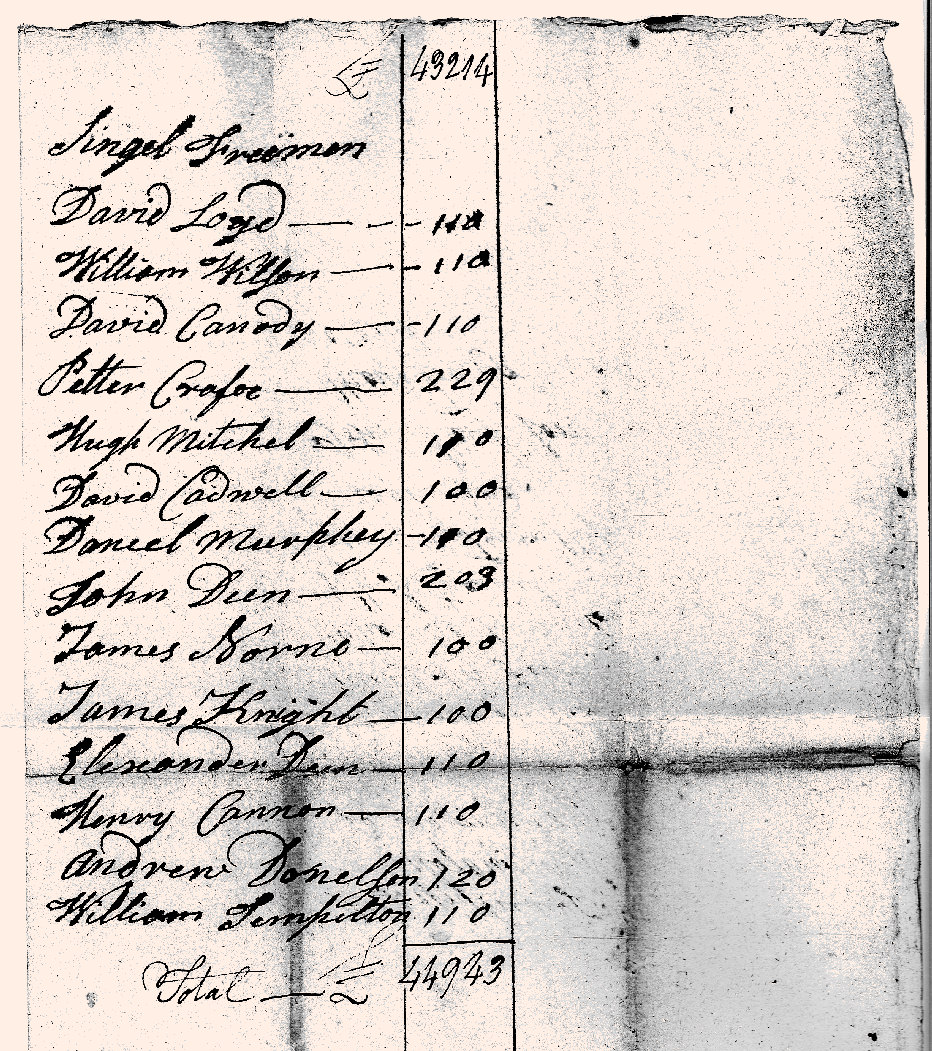 £ 43214
Singel Freemen
David Loyd — - - 110
William Wilson — - 110
David Canody — - 110
Petter 229
Hugh Mitchel — 110
David Cadwell — 100
Daneel Murphey - 110
John Deen — 203
James — 100
James Knight — 100
Elexander Deen — 110
Henry Cannon — 110
Andrew Donelson 120
William Tempelton 110
Total — £ 44943